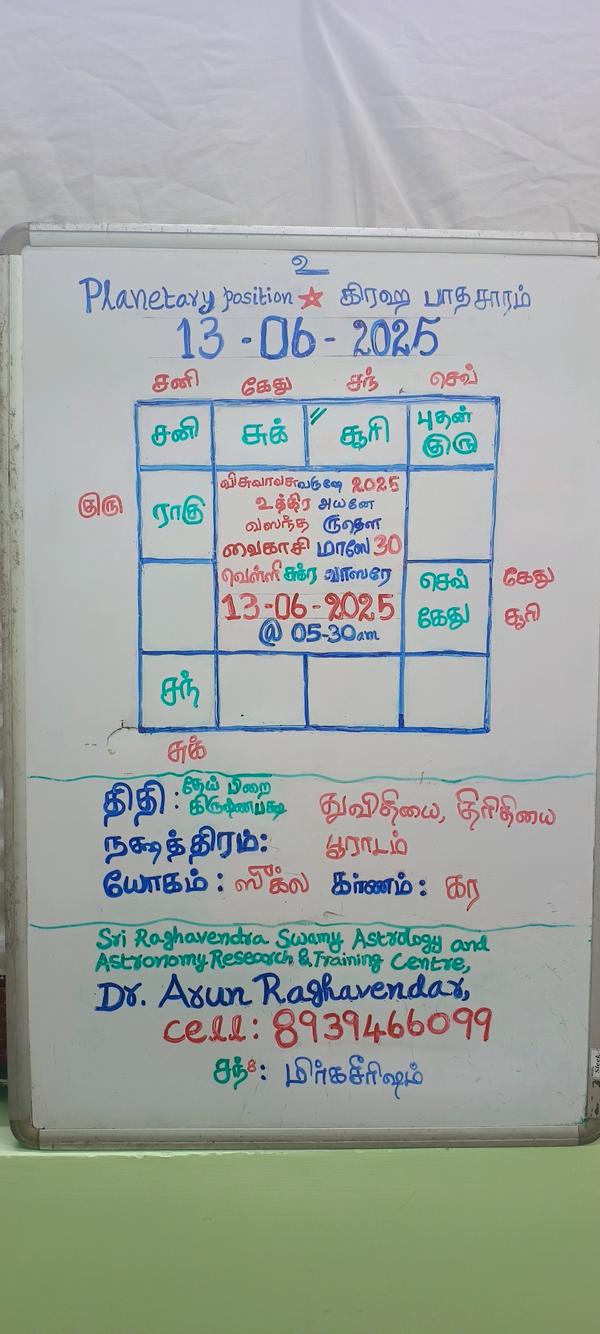 உ
Planetary position ☆ கிரஹ பாதசாரம்
13-06-2025
சனி கேது சந் செவ்
சனி சுக் சூரி புதன் குரு
குரு ராகு
விசுவாவசுவருஷே 2025
உத்திர அயனே
வஸந்த ருதௌ
வைகாசி மாஸே 30
வெள்ளி சுக்ர வாஸரே
13-06-2025
@ 05-30am
செவ் கேது
கேது சூரி
சந்
சுக்
திதி: தேய் பிறை கிருஷ்ணபக்ஷ துவிதியை, திரிதியை
நக்ஷத்திரம்: பூராடம்
யோகம்: கர்ணம்: கர
Sri Raghavendra Swamy Astrology and
Astronomy Research & Training Centre,
Dr. Arun Raghavendar,
cell: 8939466099
சந்8: மிர்கசீரிஷம்